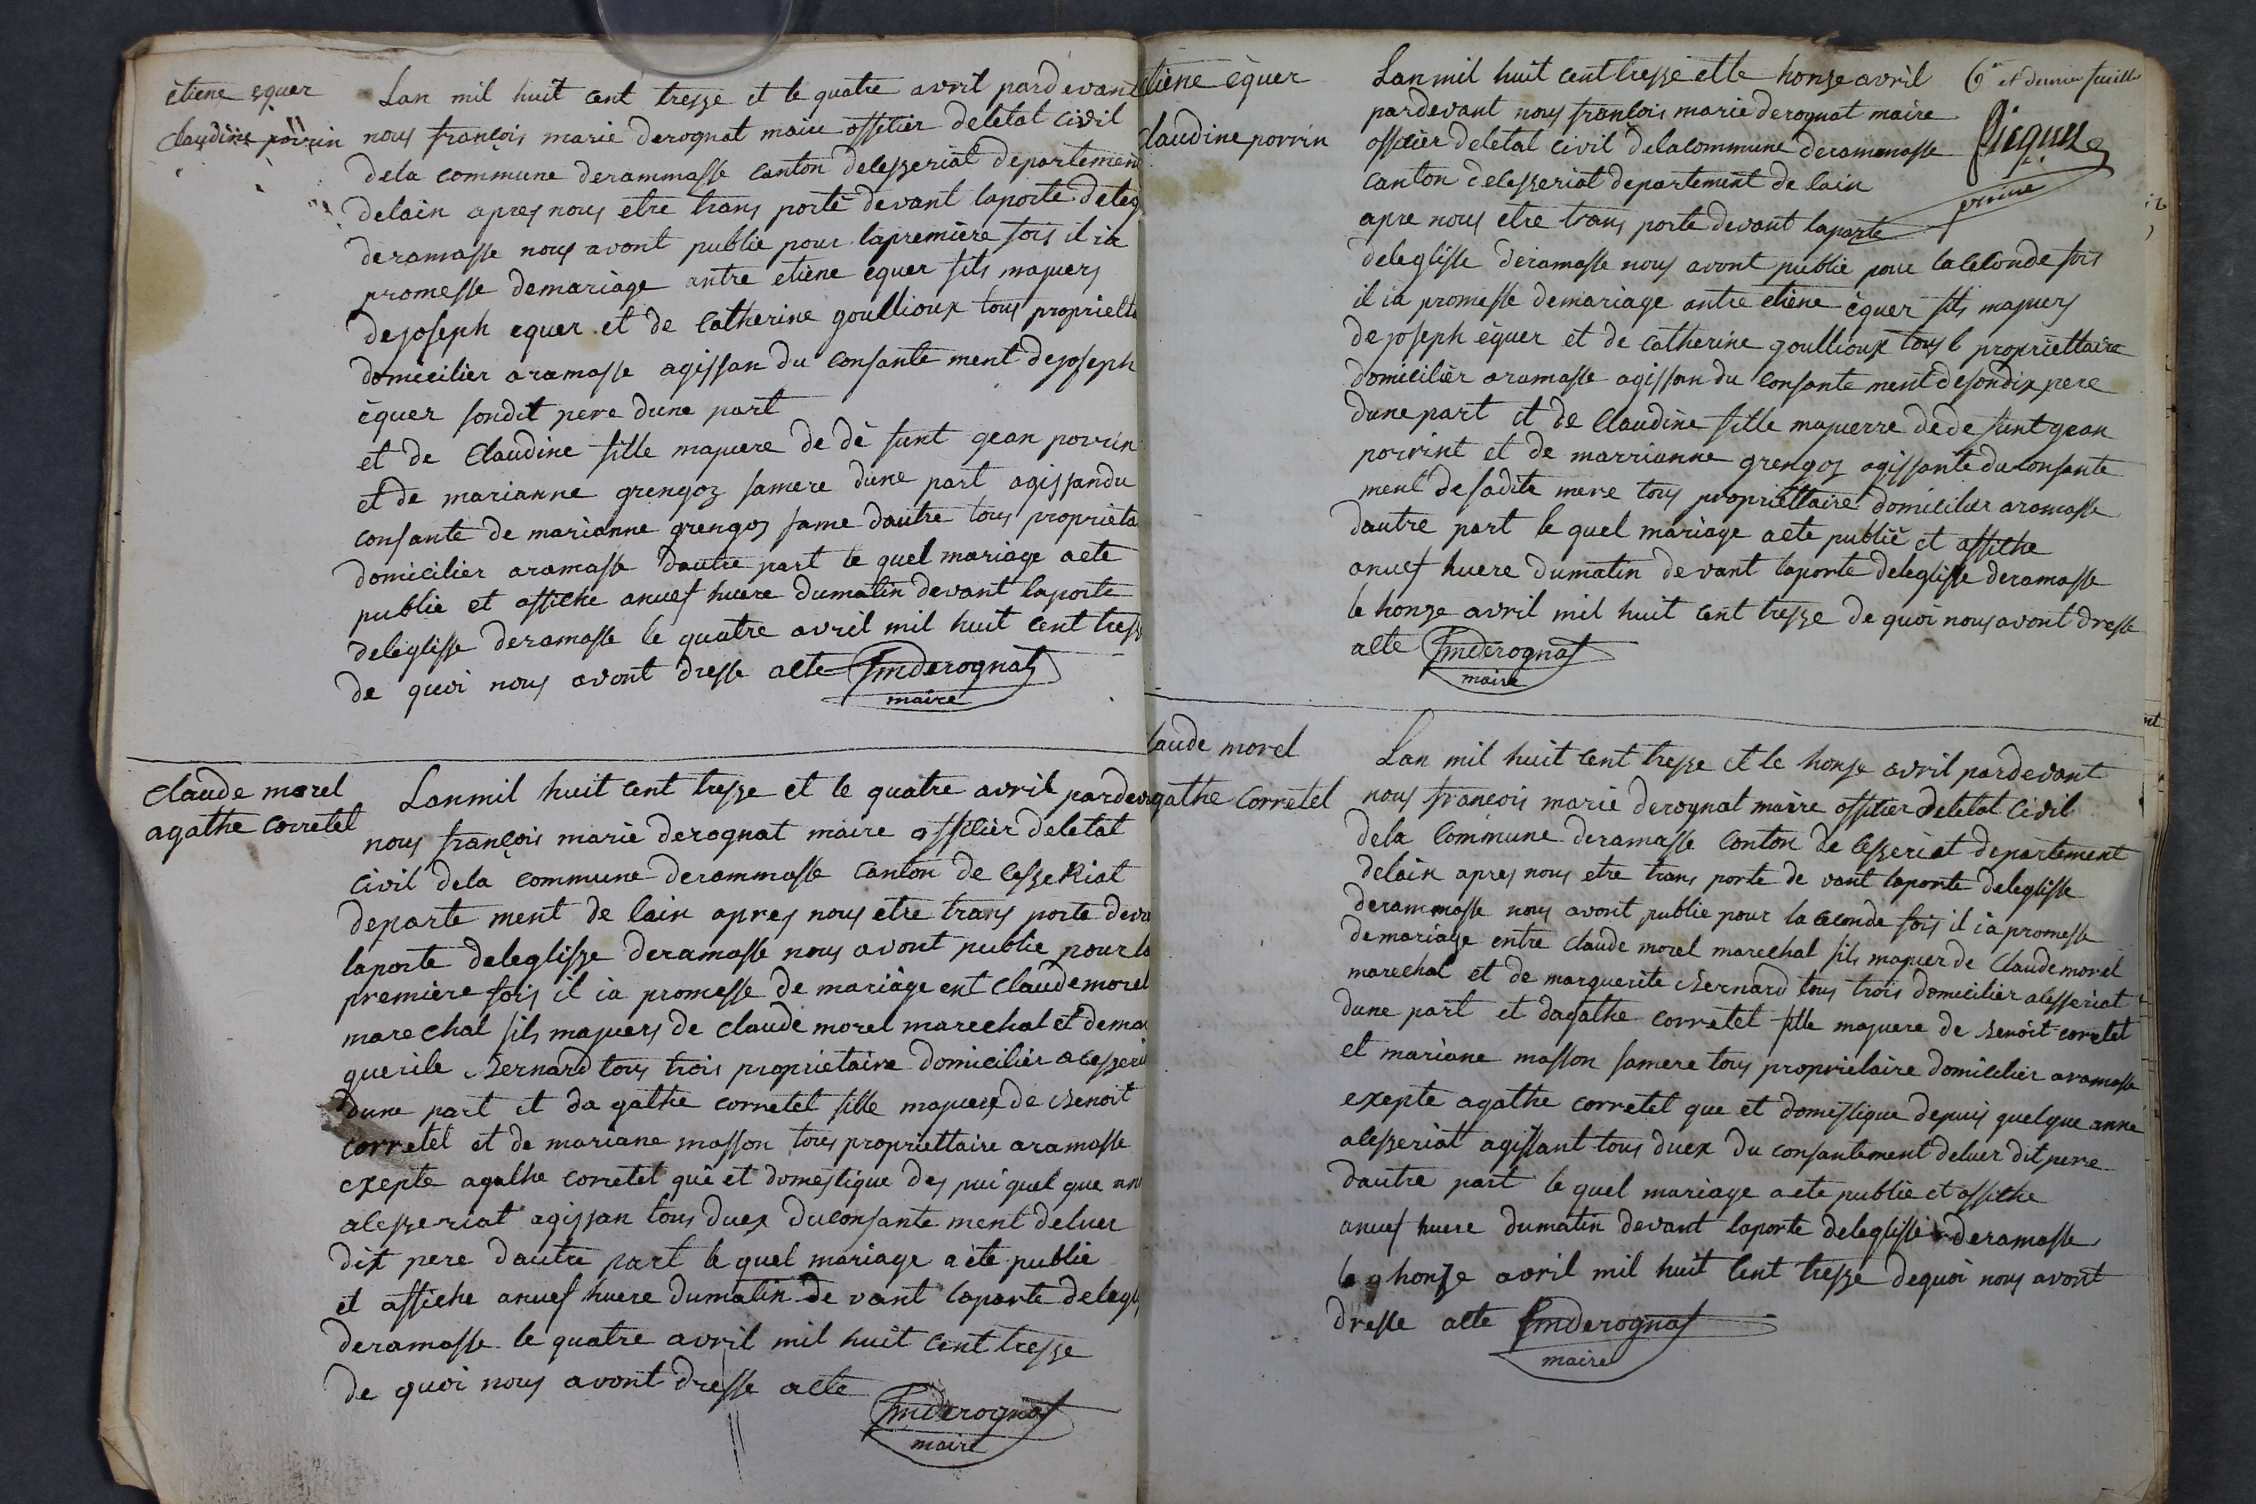 étiene équer
Claudine porrin
Lan mil huit cent tresze et le quatre avril pardevant
nous françois marie derognat maire offitier deletat civil
dela commune derammasse canton deleszeriat departemen
delain apres nous etre trans porté devant laporte deleg
deramasse nous avont publie pour lapremière fois il ia
promesse demariage antre etiène équer fils majuers
dejoseph equer et de Catherine goullioux tous propriette
domicilier aramasse agissan du consante ment dejoseph
équer sondit pere dune part
et de Claudine fille majuere de dè funt gean porrin
et de marianne grengoz samere dune part agissandu
consante de marianne grengoz same dautre tous proprieta
domicilier aramasse dautre part le quel mariage aete
publie et affiche anuef huere dumatin devant laporte
deleglisse deramasse le quatre avril mil huit cent tresz
de quoi nous avont dresse acte fmderognat
maire
Claude morel
agathe corretel
Lanmil huit cent tresze et le quatre avril pardeva
nous françois marie derognat maire offitièr deletat
civil dela commune derammasse canton de ceszeRiat
departe ment de lain apres nous etre trans porte deva
laporte deleglisze deramasse nous avont publie pour la
première fois il ia promesse de mariage ent Claude morel
marechal fils majuers de claude morel marechal et demar
guerile Bernard tous trois proprietaire domicilier aceszeri
dune part et da gathe corretel fille majuere de Benoit
corretel et de mariane masson tous propriettaire aramasse
exepte agathe corretel què et domestique des pui quel que ann
aleszeriat agissan tous duex duconsante ment deluer
dit pere dautre part le quel mariage aète publie
et affiche anuef huere dumatin de vant laporte delegli
deramasse le quatre avril mil huit cent tresze
de quoi nous avont dresse acte
fmderognat
maire
etiène équer
Claudine porrin
6e et dernier feuille
Lanmil huit cent tresze et le honze avril
pardevant nous françois marie derognat maire
offitièr deletat civil delacommune derammasse
canton deceszeriat departement de lain
apre nous etre trans porte devant laporte
deleglisse deramasse nous avont publie pour laceconde fois
il ia promesse demariage antre etiène équer fils majuers
dejoseph équer et de catherine goullioux tous propriettaire
domicilièr aramasse agissan du consante ment desondix pere
dune part et de Claudine fille majuerre dede funt gean
porrint et de marrianne grengoz agissante duconsante
ment desadite mere tous propriettaire domicilier aramasse
dautre part le quel mariage aete publiè et affiche
anuef huere dumatin devant laporte deleglisse deramasse
le honze avril mil huit cent tresze de quoi nous avont dresse
acte fmderognat
maire
laude morel
agathe corretel
Lan mil huit cent tresze et le honze avril pardevant
nous francois marie derognat maire offitier deletat civil
dela Commune deramasse conton de ceszeriat departement
delain apres nous etre trans porte de vant laporte deleglisse
derammasse nous avont publie pour la ceconde fois il ià promesse
demariage entre claude morel marechal fils majuer de Claude morel
marechal et de marguerite Bernard tous trois domicilier aceszeriat
dune part et dagathe corretel fille majuere de Benoit corretel
et mariane masson samere tous proprietaire domicilier aramasse
exepte agathe corretel que et domestique depuis quelque anné
aleszeriat agissant tous duex du consantement deluer dit pere
dautre part le quel mariage aete publie et affiche
anuef huere dumatin devant laporte deleglisse deramasse
le honze avril mil huit cent tresze dequoi nous avont
dresse acte fmderognat
maire